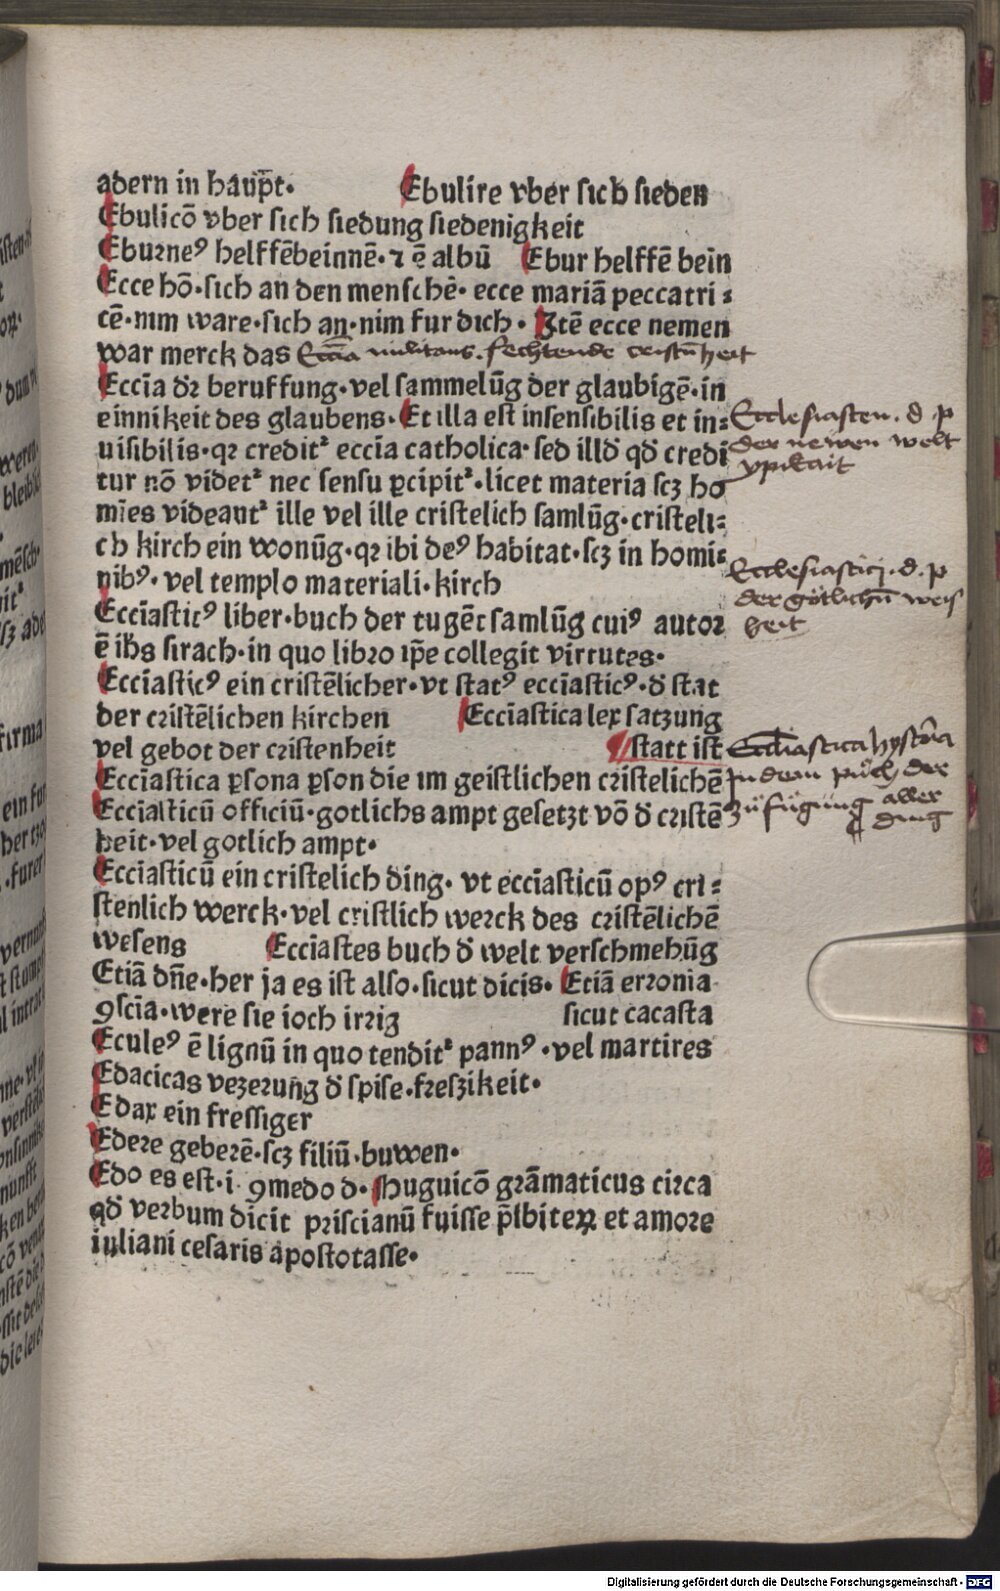 adern in haup̄t. Ebulire vber sich sieden
Ebulicō vber sich siedung siedenigkeit
Eburneꝰ helffēbeinnē. ⁊ ē albū Ebur helffē bein
Ecce hō. sich an den menschē. ecce mariā peccatri⸗
cē. nim ware. sich an. nim fur dich. Itē ecce nemen
war merck das Eccīa militans. fechtende cristn̄heit
Eccīa dꝛ beruffung. vel samelūg der glaubigē. in
einnikeit des glaubens. Et illa est insensibilis et in⸗
uisibilis. qꝛ creditᷣ eccīa catholica. sed illd̄ qd̄ credi
tur nō videtᷣ nec sensu ꝑcipitᷣ. licet materia scꝫ ho
mīes videantᷣ ille vel ille cristelich samlūg. cristeli⸗
ch kirch ein wonūg. qꝛ ibi deꝰ habitat. scꝫ in homi⸗
nibꝰ. vel templo materiali. kirch
Eccīasticꝰ liber. buch der tugēt samlūg cuiꝰ autoꝛ
ē ih̄s sirach. in quo libꝛo ip̄e collegit virtutes.
Eccīasticꝰ ein cristēlicher. vt statꝰ eccīasticꝰ. d̄ stat
der cꝛistēlichen kirchen Eccīastica lex satzung
vel gebot der cꝛistenheit statt ist
Eccīastica ꝑsona ꝑson die im geistlichen cꝛistelichē
Eccīasticū officiū. gotlichs ampt gesetzt vō d̄ cꝛistē
heit. vel gotlich ampt.
Eccīasticū ein cristelich ding. vt eccīasticū opꝰ cri⸗
stenlich werck. vel cristlich weꝛck des cꝛistēlichē
wesens Eccīastes buch d̄ welt verschmehūg
Etiā dn̄e. her ja es ist also. sicut dicis. Etiā erꝛonia
ꝯscīa. were sie ioch irꝛig sicut cacasta
Eculeꝰ ē lignū in quo tenditᷣ pannꝰ. vel martires
Edacitas vezerung d̄ spise. freszikeit.
Edax ein fressiger
Edere geberē. scꝫ filiū. buwen.
Edo es est. i. ꝯmedo d. Huguicō grāmaticus circa
qd̄ verbum dicit priscianū fuisse p̄sbiteꝝ et amoꝛe
iuliani cesaris apostotasse.
Ecclesiasten. d. p
der newen welt
ypikait
Ecclesiasticj. d. p
der gotlichn̄ weis
heit
Ecclesiastica hystoria
Jn dem půch der
zufůgůng aller
ding
Digitalisierung gefördert durch die Deutsche Forschungsgemeinschaft - DFG